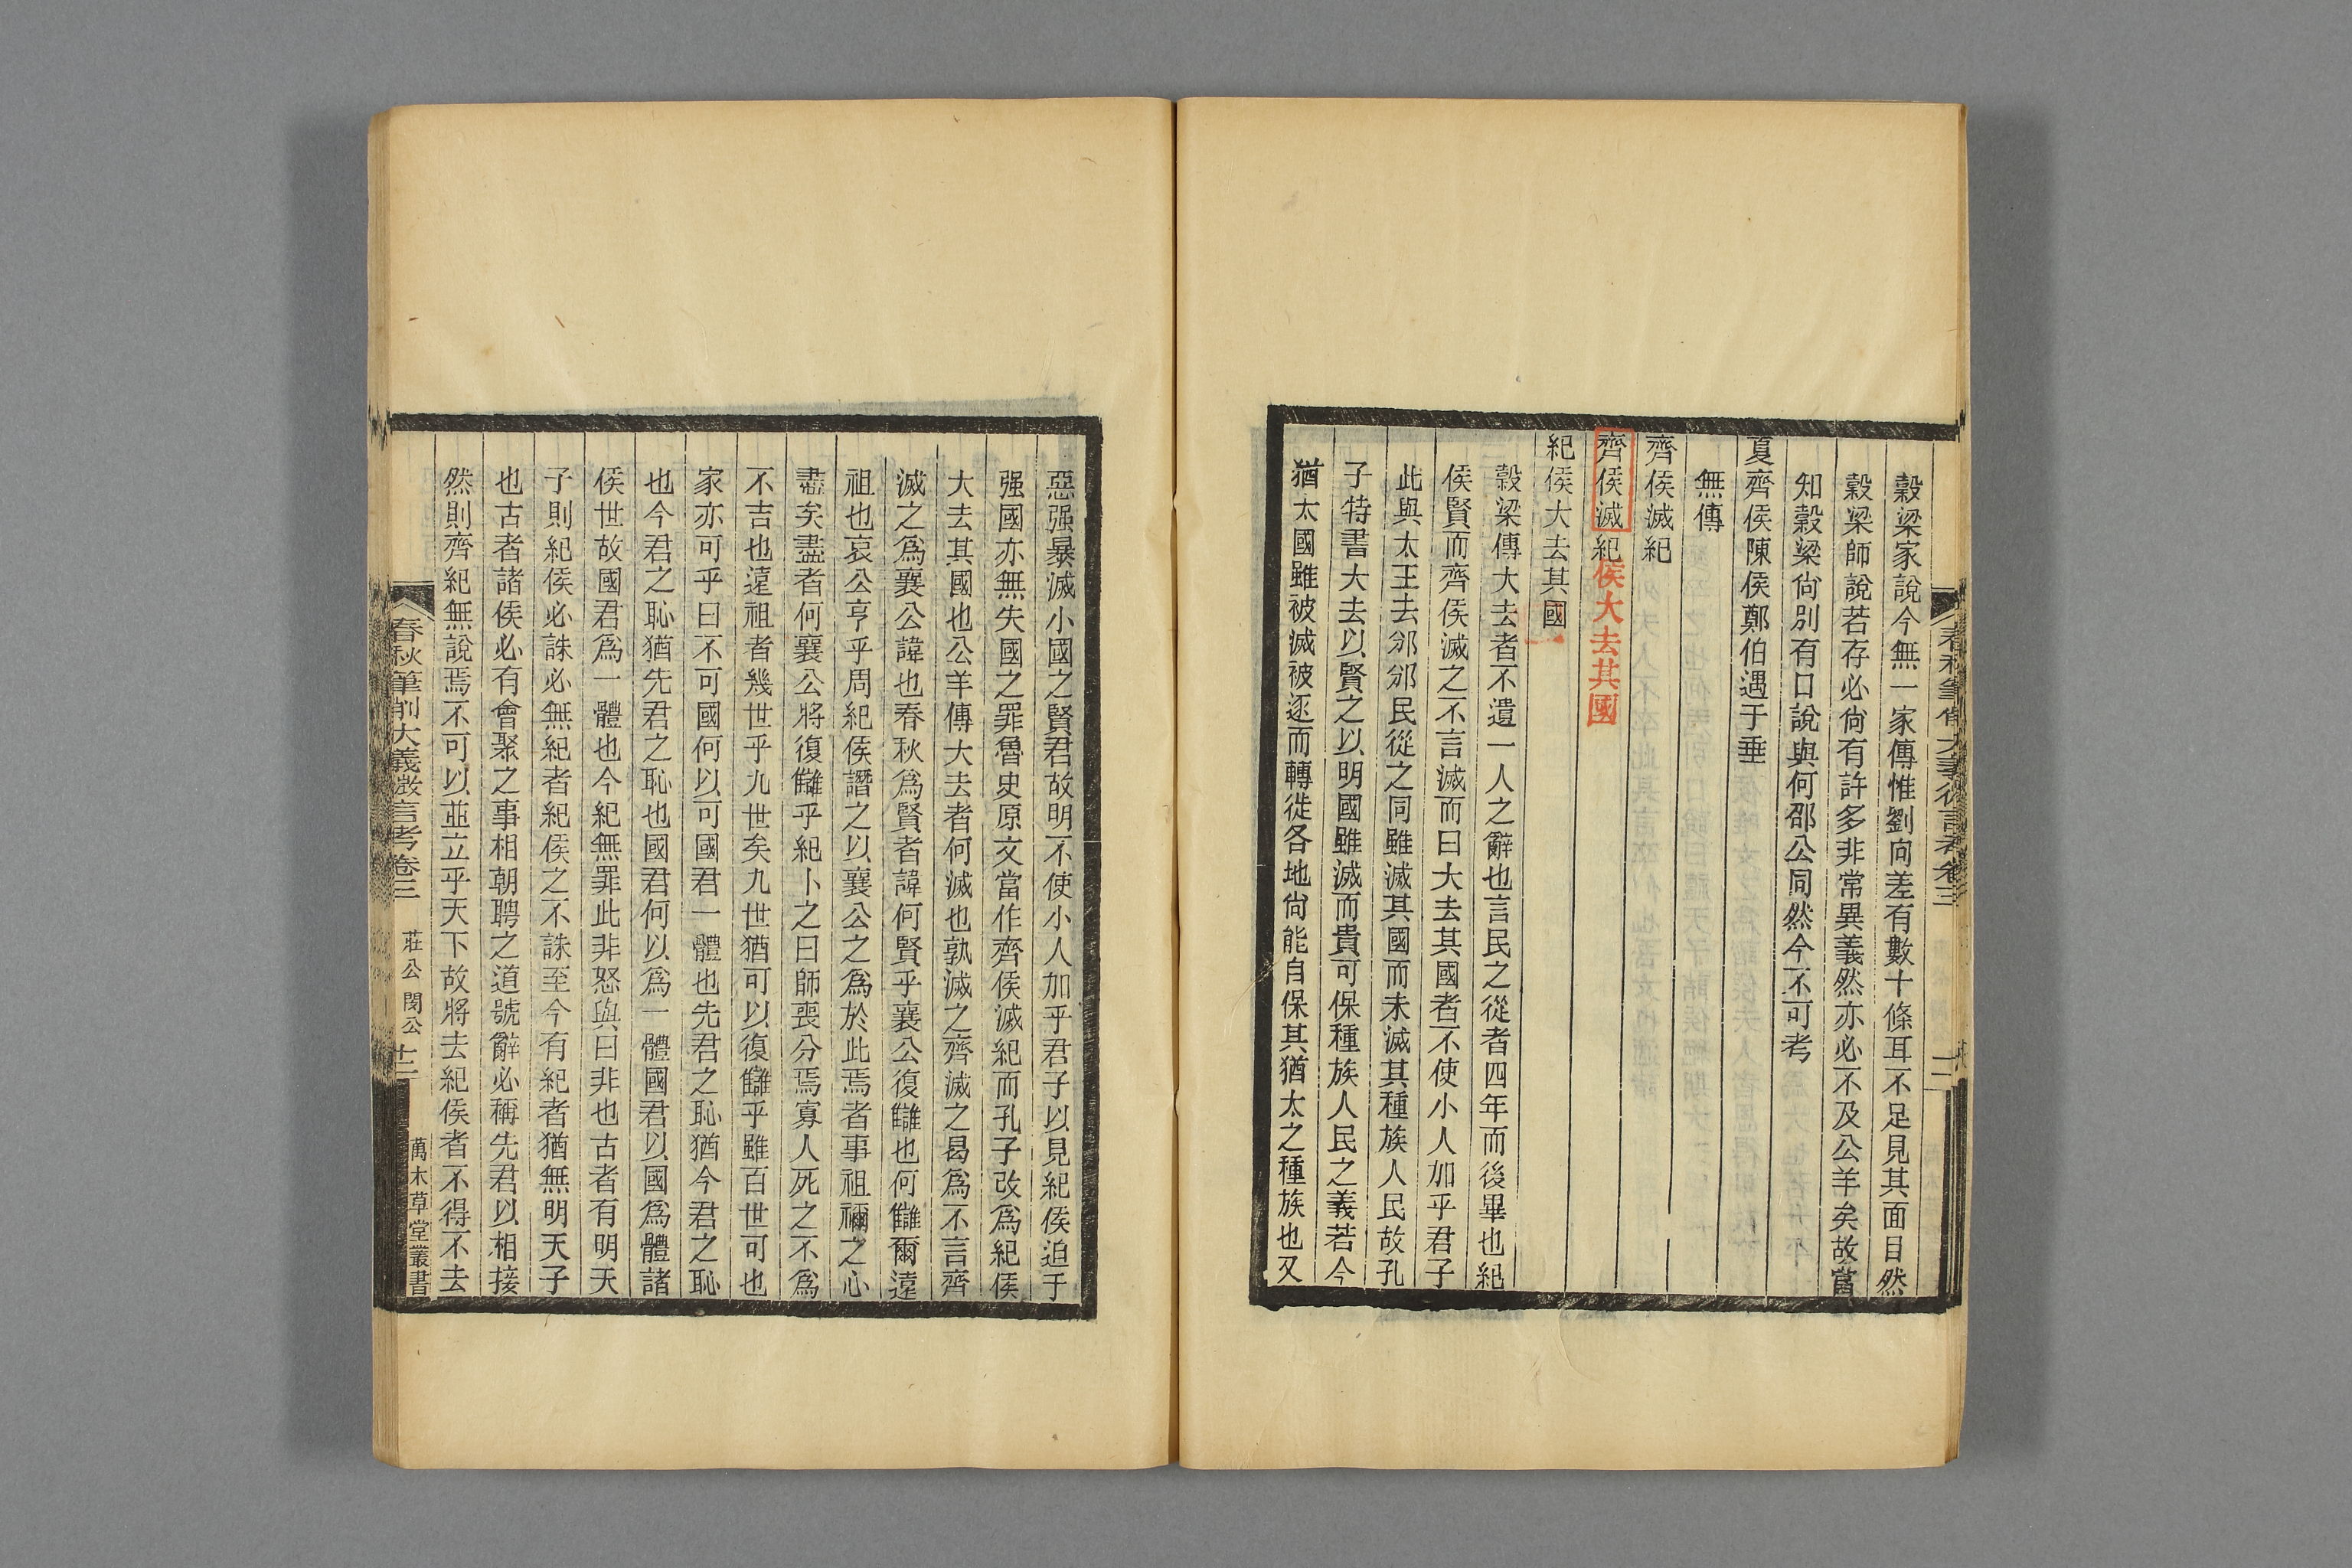 穀梁家說今無一家傳惟劉向差有數十條耳不足見其面目然
穀梁師說若存必尙有許多非常異義然亦必不及公羊矣故嘗
知穀梁尙別有口說與何邵公同然今不可考
夏齊侯陳侯鄭伯遇于垂
無傳
齊侯滅紀
齊侯滅紀侯大去其國
紀侯大去其國
穀梁傳大去者不遺一人之辭也言民之從者四年而後畢也紀
侯賢而齊侯滅之不言滅而曰大去其國者不使小人加乎君子
此與太王去邠邠民從之同雖滅其國而未滅其種族人民故孔
子特書大去以賢之以明國雖滅而貴可保種族人民之義若今
猶太國雖被滅被逐而轉徙各地尙能自保其猶太之種族也又
惡强暴滅小國之賢君故明不使小人加乎君子以見紀侯迫于
强國亦無失國之罪魯史原文當作齊侯滅紀而孔子改爲紀侯
大去其國也公羊傳大去者何滅也孰滅之齊滅之曷爲不言齊
滅之爲襄公諱也春秋爲賢者諱何賢乎襄公復讎也何讎爾遠
祖也哀公亨乎周紀侯譖之以襄公之爲於此焉者事祖禰之心
盡矣盡者何襄公將復讎乎紀卜之曰師喪分焉寡人死之不爲
不吉也遠祖者幾世乎九世矣九世猶可以復讎乎雖百世可也
家亦可乎曰不可國何以可國君一體也先君之恥猶今君之恥
也今君之恥猶先君之恥也國君何以爲一體國君以國爲體諸
侯世故國君爲一體也今紀無罪此非怒與曰非也古者有明天
子則紀侯必誅必無紀者紀侯之不誅至今有紀者猶無明天子
也古者諸侯必有會聚之事相朝聘之道號辭必稱先君以相接
然則齊紀無說焉不可以並立乎天下故將去紀侯者不得不去
春秋筆削大義微言考卷三 莊公 閔公 十二 萬木草堂叢書